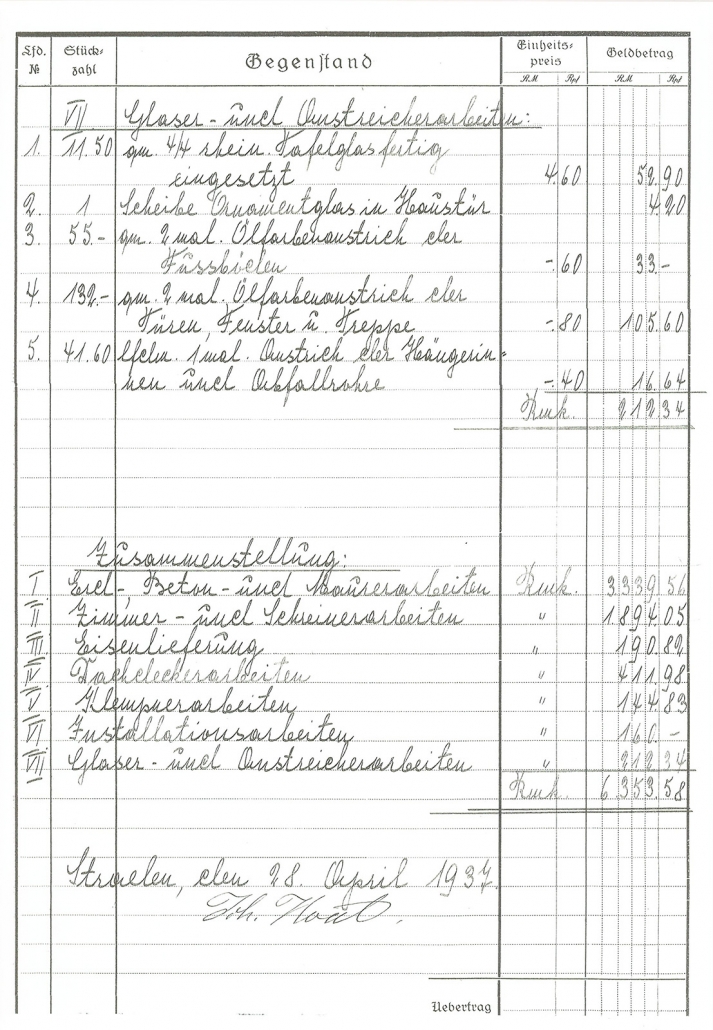 Lfd. № Stück-zahl Gegenstand Einheits-preis RM Rpf Geldbetrag RM Rpf
VII Glaser- und Anstreicherarbeiten:
1. 11.50 qm. 4/4 rhein. Tafelglas fertig
eingesetzt 4.60 52.90
2. 1 Scheibe Ornamentglas in Haustür 4.20
3. 55.- qm. 2 mal. Ölfarbenanstrich der
Fussböden -.60 33.-
4. 132.- qm. 2 mal. Ölfarbenanstrich der
Türen, Fenster u. Treppe -.80 105.60
5. 41.60 lfdm. 1 mal. Anstrich der Hängerin=
nen und Abfallrohre -.40 16.64
Rmk. 212.34
Zusammenstellung:
I Erd-, Beton- und Maurerarbeiten Rmk. 3339.56
II Zimmer- und Schreinerarbeiten " 1.894.05
III Eisenlieferung " 190.82
IV Dachdeckerarbeiten " 411.98
V Klempnerarbeiten " 144.83
VI Installationsarbeiten " 160.-
VII Glaser- und Anstreicherarbeiten " 212.34
Rmk. 6.353.58
Straelen, den 28. April 1937.
Uebertrag